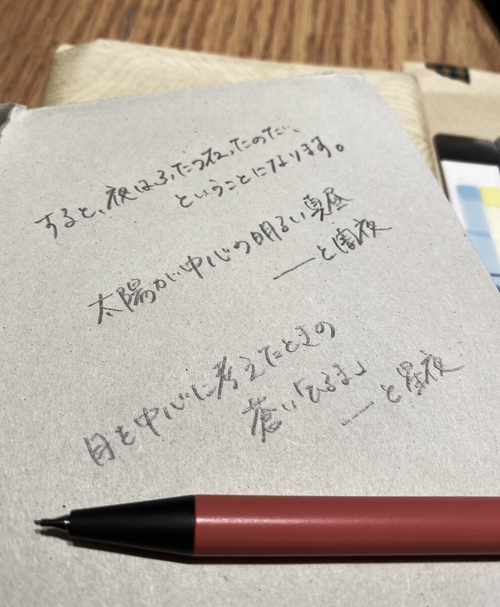 すると、夜はふたつ在ったのだ、
ということになります。
太陽が中心の明るい真昼
――と闇夜
月を中心に考えたときの
蒼い「ひるま」
――と昼夜